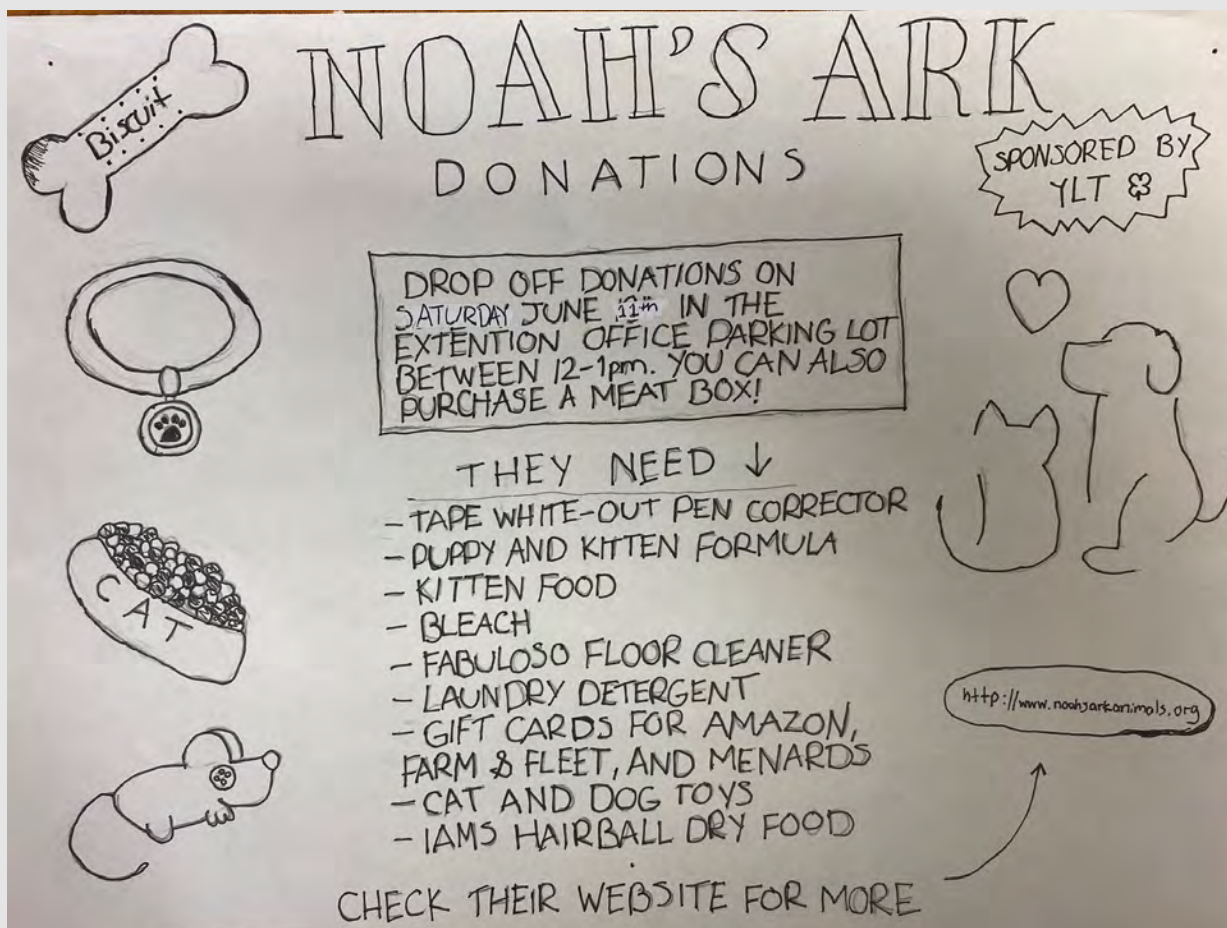 NOAH'S ARK
DONATIONS
Biscuit
SPONSORED BY
YLT
DROP OFF DONATIONS ON
SATURDAY JUNE 11th IN THE
EXTENTION OFFICE PARKING LOT
BETWEEN 12-1pm. YOU CAN ALSO
PURCHASE A MEAT BOX!
THEY NEED ↓
- TAPE WHITE-OUT PEN CORRECTOR
- PUPPY AND KITTEN FORMULA
- KITTEN FOOD
- BLEACH
- FABULOSO FLOOR CLEANER
- LAUNDRY DETERGENT
- GIFT CARDS FOR AMAZON,
FARM & FLEET, AND MENARDS
- CAT AND DOG TOYS
- IAMS HAIRBALL DRY FOOD
CAT
http://www.noahsarkanimals.org
CHECK THEIR WEBSITE FOR MORE